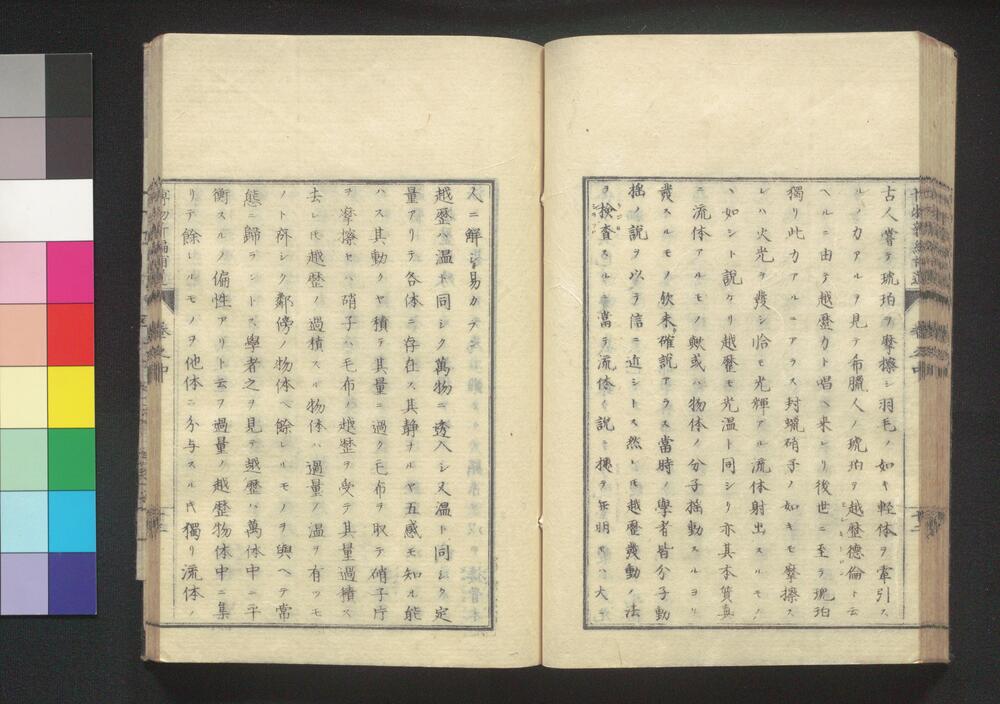 古人嘗テ琥珀ヲ摩擦シ羽毛ノ如キ軽体ヲ牽引ス
ルノ力アルヲ見テ希臘人ノ琥珀ヲ越歴德倫ト云
ヘルニ由テ越歴力ト唱ヘ来レリ後世ニ至テ琥珀
獨リ此力アルニアラス封蠟硝子ノ如キモ摩擦ス
レハ火光ヲ發シ恰モ光輝アル流体射出スルモノ
ヽ如シト説ケリ越歴モ光温ト同シク亦其本質真
ニ流体アルモノ歟或ハ物体ノ分子揺動スルヨリ
發スルモノ歟未確説アラス當時ノ學者皆分子動
揺ノ説ヲ以テ信ニ近シトス然レ𪜈越歴發動ノ法
ヲ檢査スルニ當テ流体ノ説ニ據ラ子ハ明カニハ大
人ニ解シ易カラ
越歴ハ温ト同シク萬物ニ透入シ又温ト同シク定
量アリテ各体ニ存在ス其静ナルヤ五感モ知ル能
ハス其動クヤ積テ其量ニ過ク毛布ヲ取テ硝子片
ヲ摩擦セハ硝子ハ毛布ノ越歴ヲ受テ其量過積ス
去レ𪜈越歴ノ過積スル物体ハ過量ノ温ヲ有ツモ
ノト齊シク鄰傍ノ物体ヘ餘レルモノヲ與ヘテ常
態ニ歸ラントス學者之ヲ見テ越歴ハ萬体中ニ平
衡スルノ偏性アリト云フ過量ノ越歴物体中ニ集
リテ餘レルモノヲ他体ニ分与スル𪜈獨リ流体ノ
博物新編補遺
卷之中